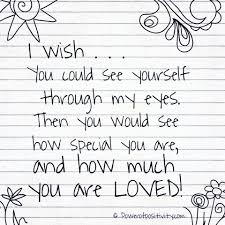 I wish . . .
You could see yourself
through my eyes.
Then you would see
how special you are,
and how much
you are LOVED!
© Powerofpositivity.com